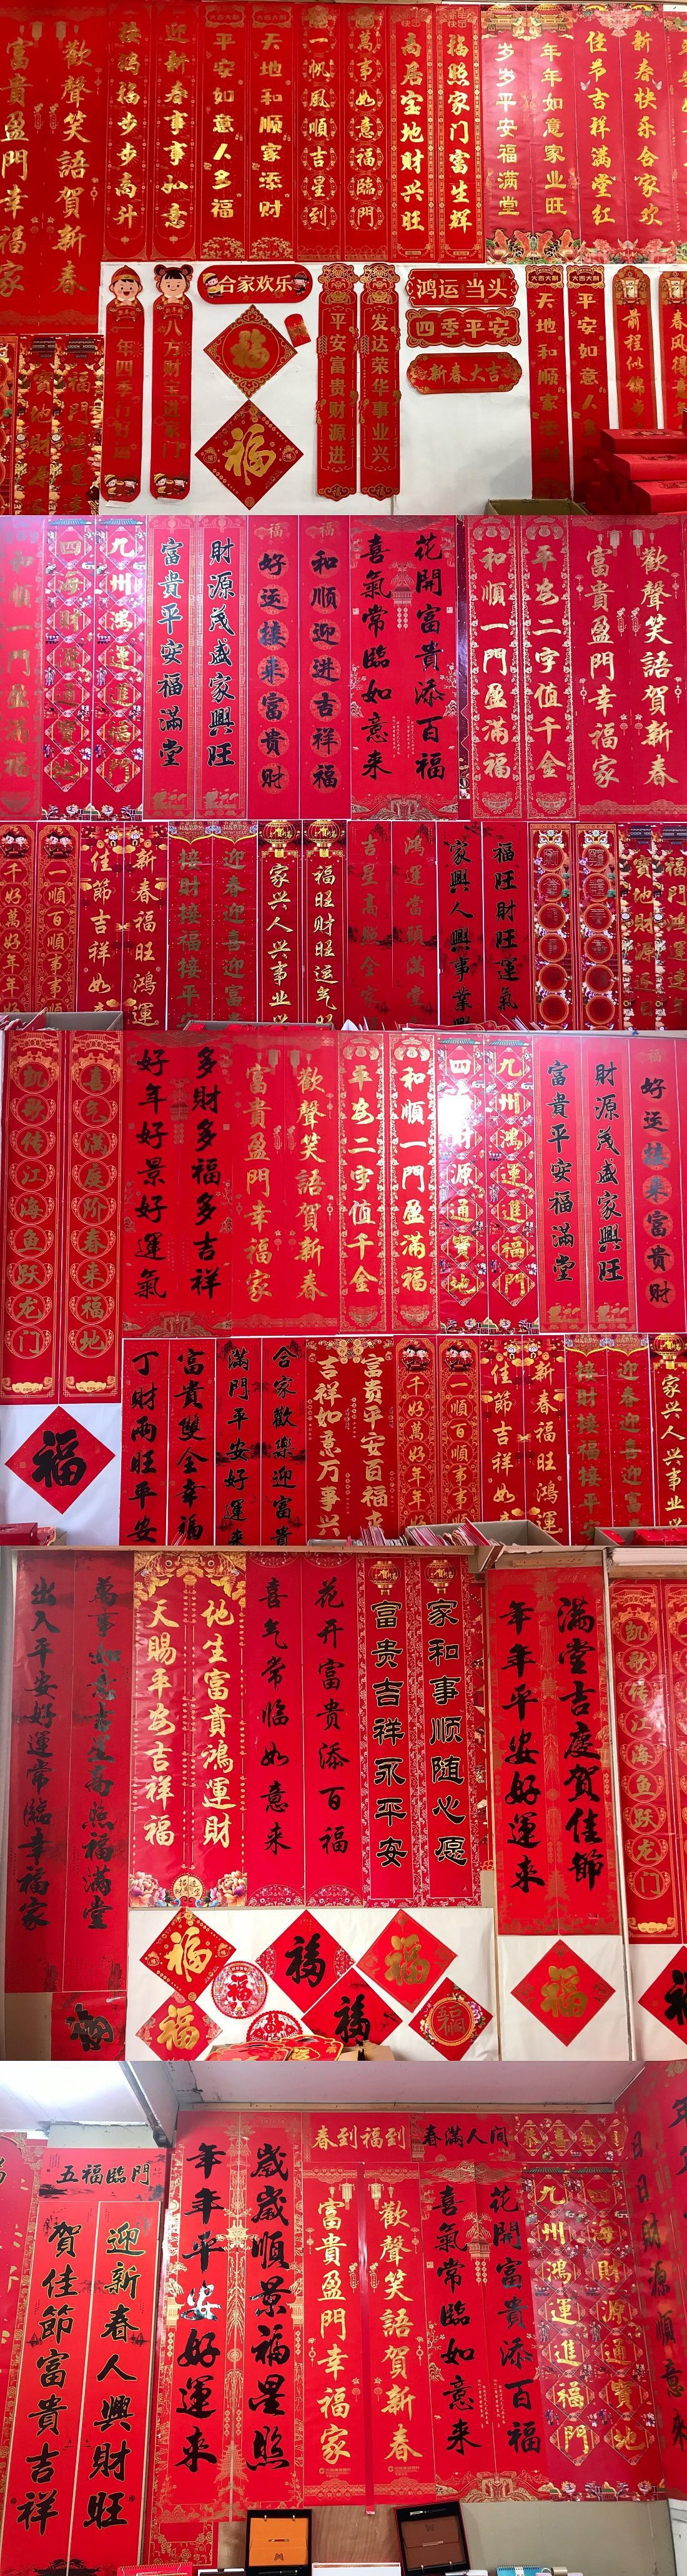 富貴盈門幸福家
歡聲笑語賀新春
接鸿福步步高升
迎新春事事如意
平安如意人多福
天地和顺家添财
一帆風順吉星到
萬事如意福臨門
高居宝地财兴旺
福照家门富生辉
岁岁平安福满堂
年年如意家业旺
佳节吉祥满堂红
新春快乐合家欢
宝地財源
福門鸿運
一年四季行好运
八方财宝进家门
合家欢乐
福
福
平安富贵财源进
发达荣华事业兴
鸿运当头
四季平安
新春大吉
大吉大利
天地和顺家添财
大吉大利
平安如意人多
前程似锦
春风得意
和順一門盈滿福
四海財源通寶地
九州鴻運進福門
富貴平安福滿堂
財源茂盛家興旺
福
好运接来富贵财
福
和顺迎进吉祥福
喜氣常臨如意来
花開富貴添百福
和順一門盈滿福
平安二字值千金
富貴盈門幸福家
歡聲笑語賀新春
千好萬好年年好
一順百順事事順
佳節吉祥如
新春福旺鴻運
接財接福接平安
迎春迎喜迎富貴
家兴人兴事业兴
福旺财旺运气旺
吉星高照全家
鴻運當頭滿堂
家興人興事業興
福旺財旺運氣
寶地財源
福門鴻運
凯歌传江海鱼跃龙门
喜气满庭阶春来福地
好年好景好運氣
多財多福多吉祥
富貴盈門幸福家
歡聲笑語賀新春
平安二字值千金
和順一門盈滿福
四海財源通寶地
九州鴻運進福門
富貴平安福滿堂
財源茂盛家興旺
福
好运接来富贵财
福
丁財兩旺平安
富貴雙全幸福
滿門平安好運来
合家歡樂迎富貴
吉祥如意万事兴
富贵平安百福
千好萬好年年好
一順百順事事順
佳節吉祥如
新春福旺鴻運
接財接福接平安
迎春迎喜迎富貴
家兴人兴事业兴
出入平安好運常臨幸福家
萬事如意吉星高照福滿堂
天賜平安吉祥福
地生富貴鴻運財
喜气常临如意来
花开富贵添百福
富贵吉祥永平安
家和事顺随心愿
年年平安好運来
滿堂吉慶賀佳節
凯歌传江海鱼跃龙门
福
福
福
福
福
福
福
福
五福臨門
賀佳節富貴吉祥
迎新春人興財旺
年年平安好運来
歲歲順景福星照
春到福到
富貴盈門幸福家
歡聲笑語賀新春
春滿人间
喜氣常臨如意来
花開富貴添百福
九州鴻運進福門
四海財源通寶地
日日財源順意来